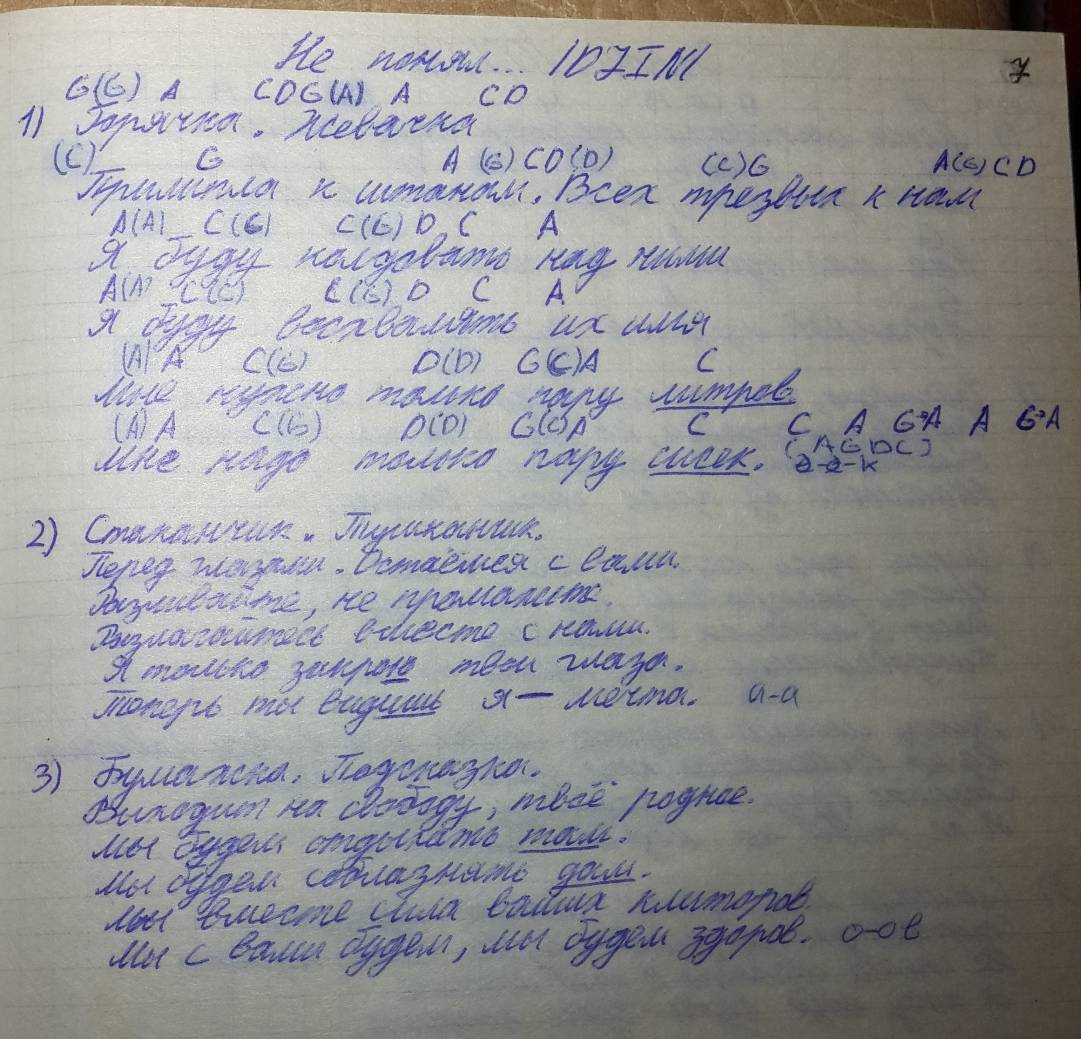 Не понял... |DJIN|
7
G(G) A CDG(A) A CD
1) Горячка. Жевачка
(C) G A (G) CD(D) (C)G A(G) CD
Прилипла к штанам. Всех трезвых к нам
A(A) C(G) C(G) D C A
Я буду колдовать над ними
A(A) C(G) C(G) D C A
Я буду восхвалять их имя
(A) A C(G) D(D) G(C)A C
Мне нужно только пару литров.
(A) A C(G) D(D) G(C)A C C A G→A A G→A
Мне надо только пару сисек. (AGDC)
э-э-к
2) Стаканчик. Тушканчик.
Перед глазами. Остаёмся с вами.
Разливайте, не промажьте.
Разлагайтесь вместе с нами.
Я только закрою твои глаза.
Теперь ты видишь я — мечта. а-а
3) Бумажка. Подсказка.
Выходит на свободу, твоё родное.
Мы будем отдыхать там.
Мы будем соблазнять дам.
Мы вместе сила ваших клиторов.
Мы с вами будем, мы будем здоров. о-ов